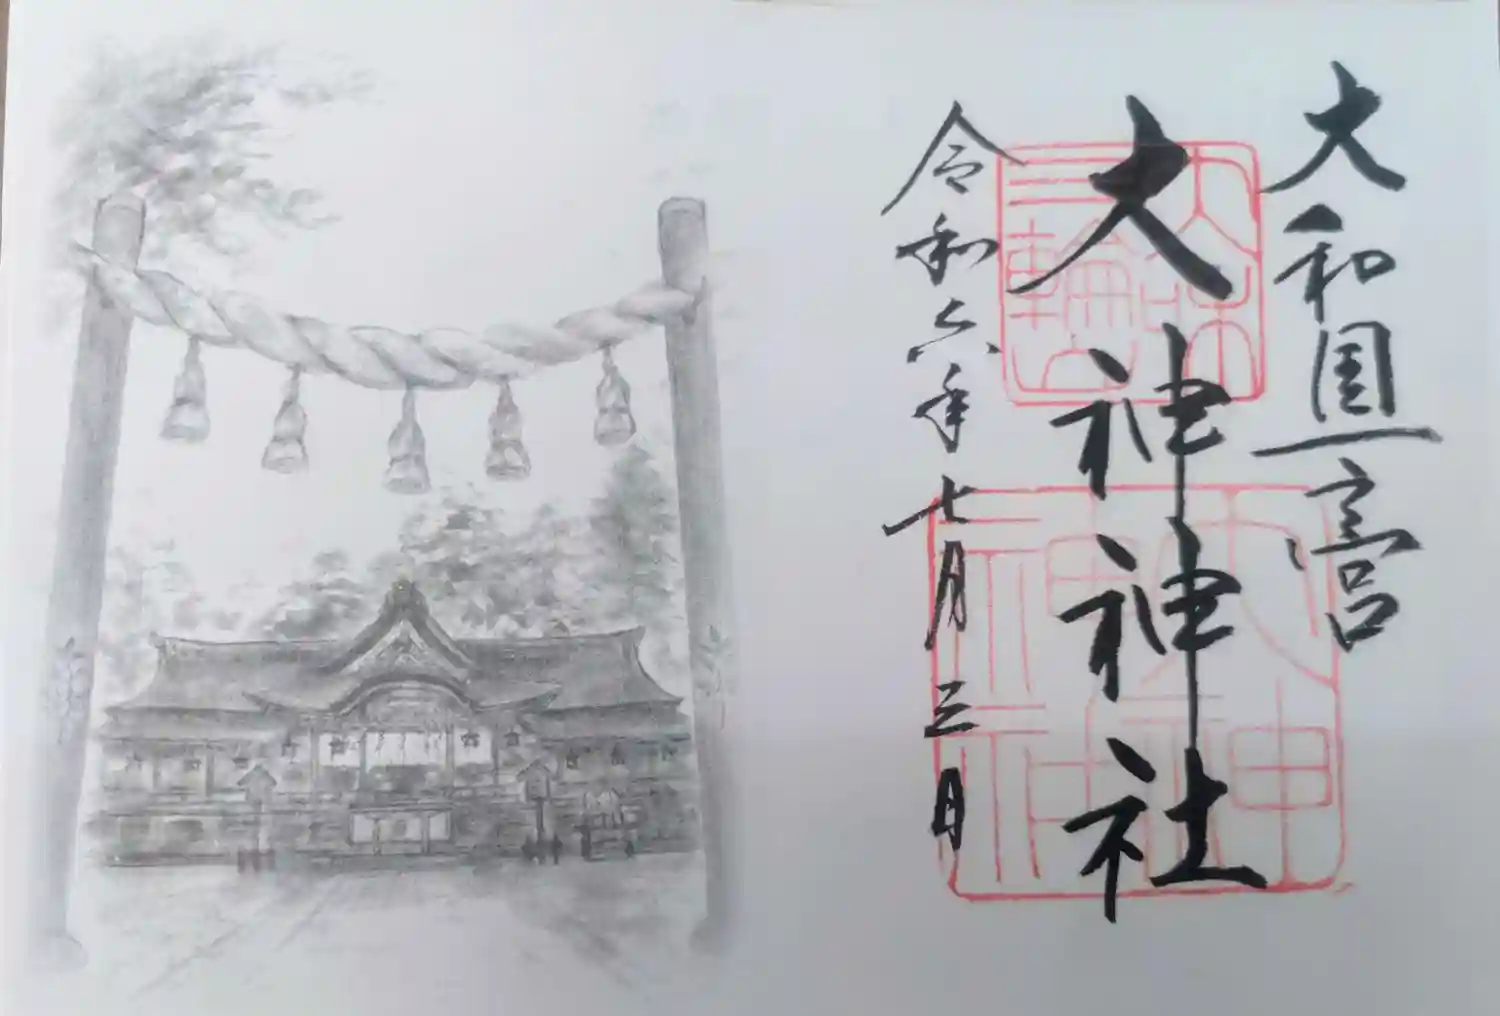 大和国一宮
大神神社
令和六年七月三日